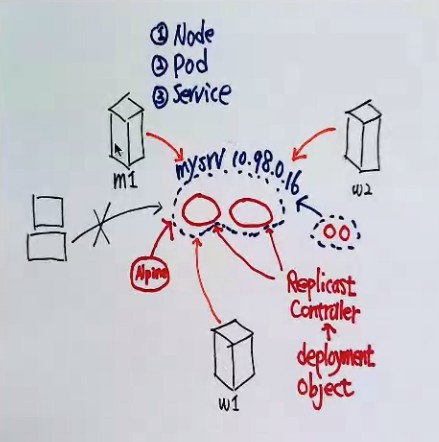 ① Node
② Pod
③ Service
m1
mysrv 10.98.0.16
w2
Alpine
Replicast
Controller
deployment
object
w1